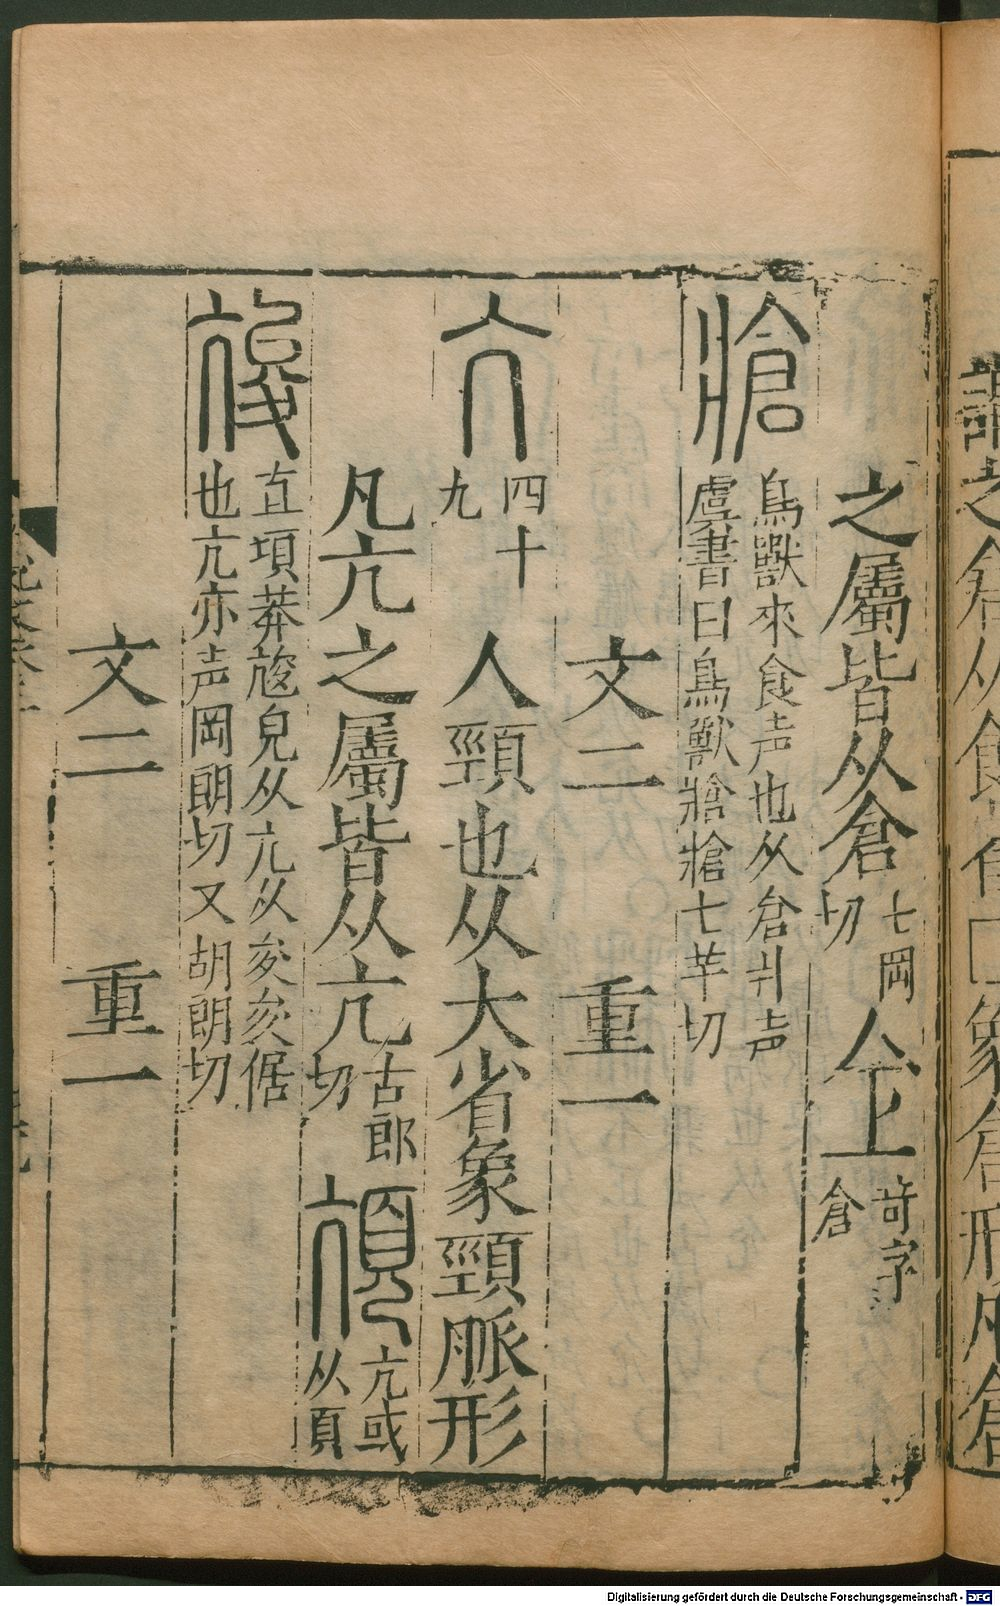 之屬皆从倉七岡切仺奇字倉
牄鳥獸來食声也从倉爿声虞書曰鳥獸牄牄七羊切
文二 重一
亢四十九 人頸也从大省象頸脈形
凡亢之屬皆从亢古郎切頏亢或从頁
䟘直項莽䟘皃从亢从夋夋倨也亢亦声岡朗切又胡朗切
文二 重一
Digitalisierung gefördert durch die Deutsche Forschungsgemeinschaft - DFG